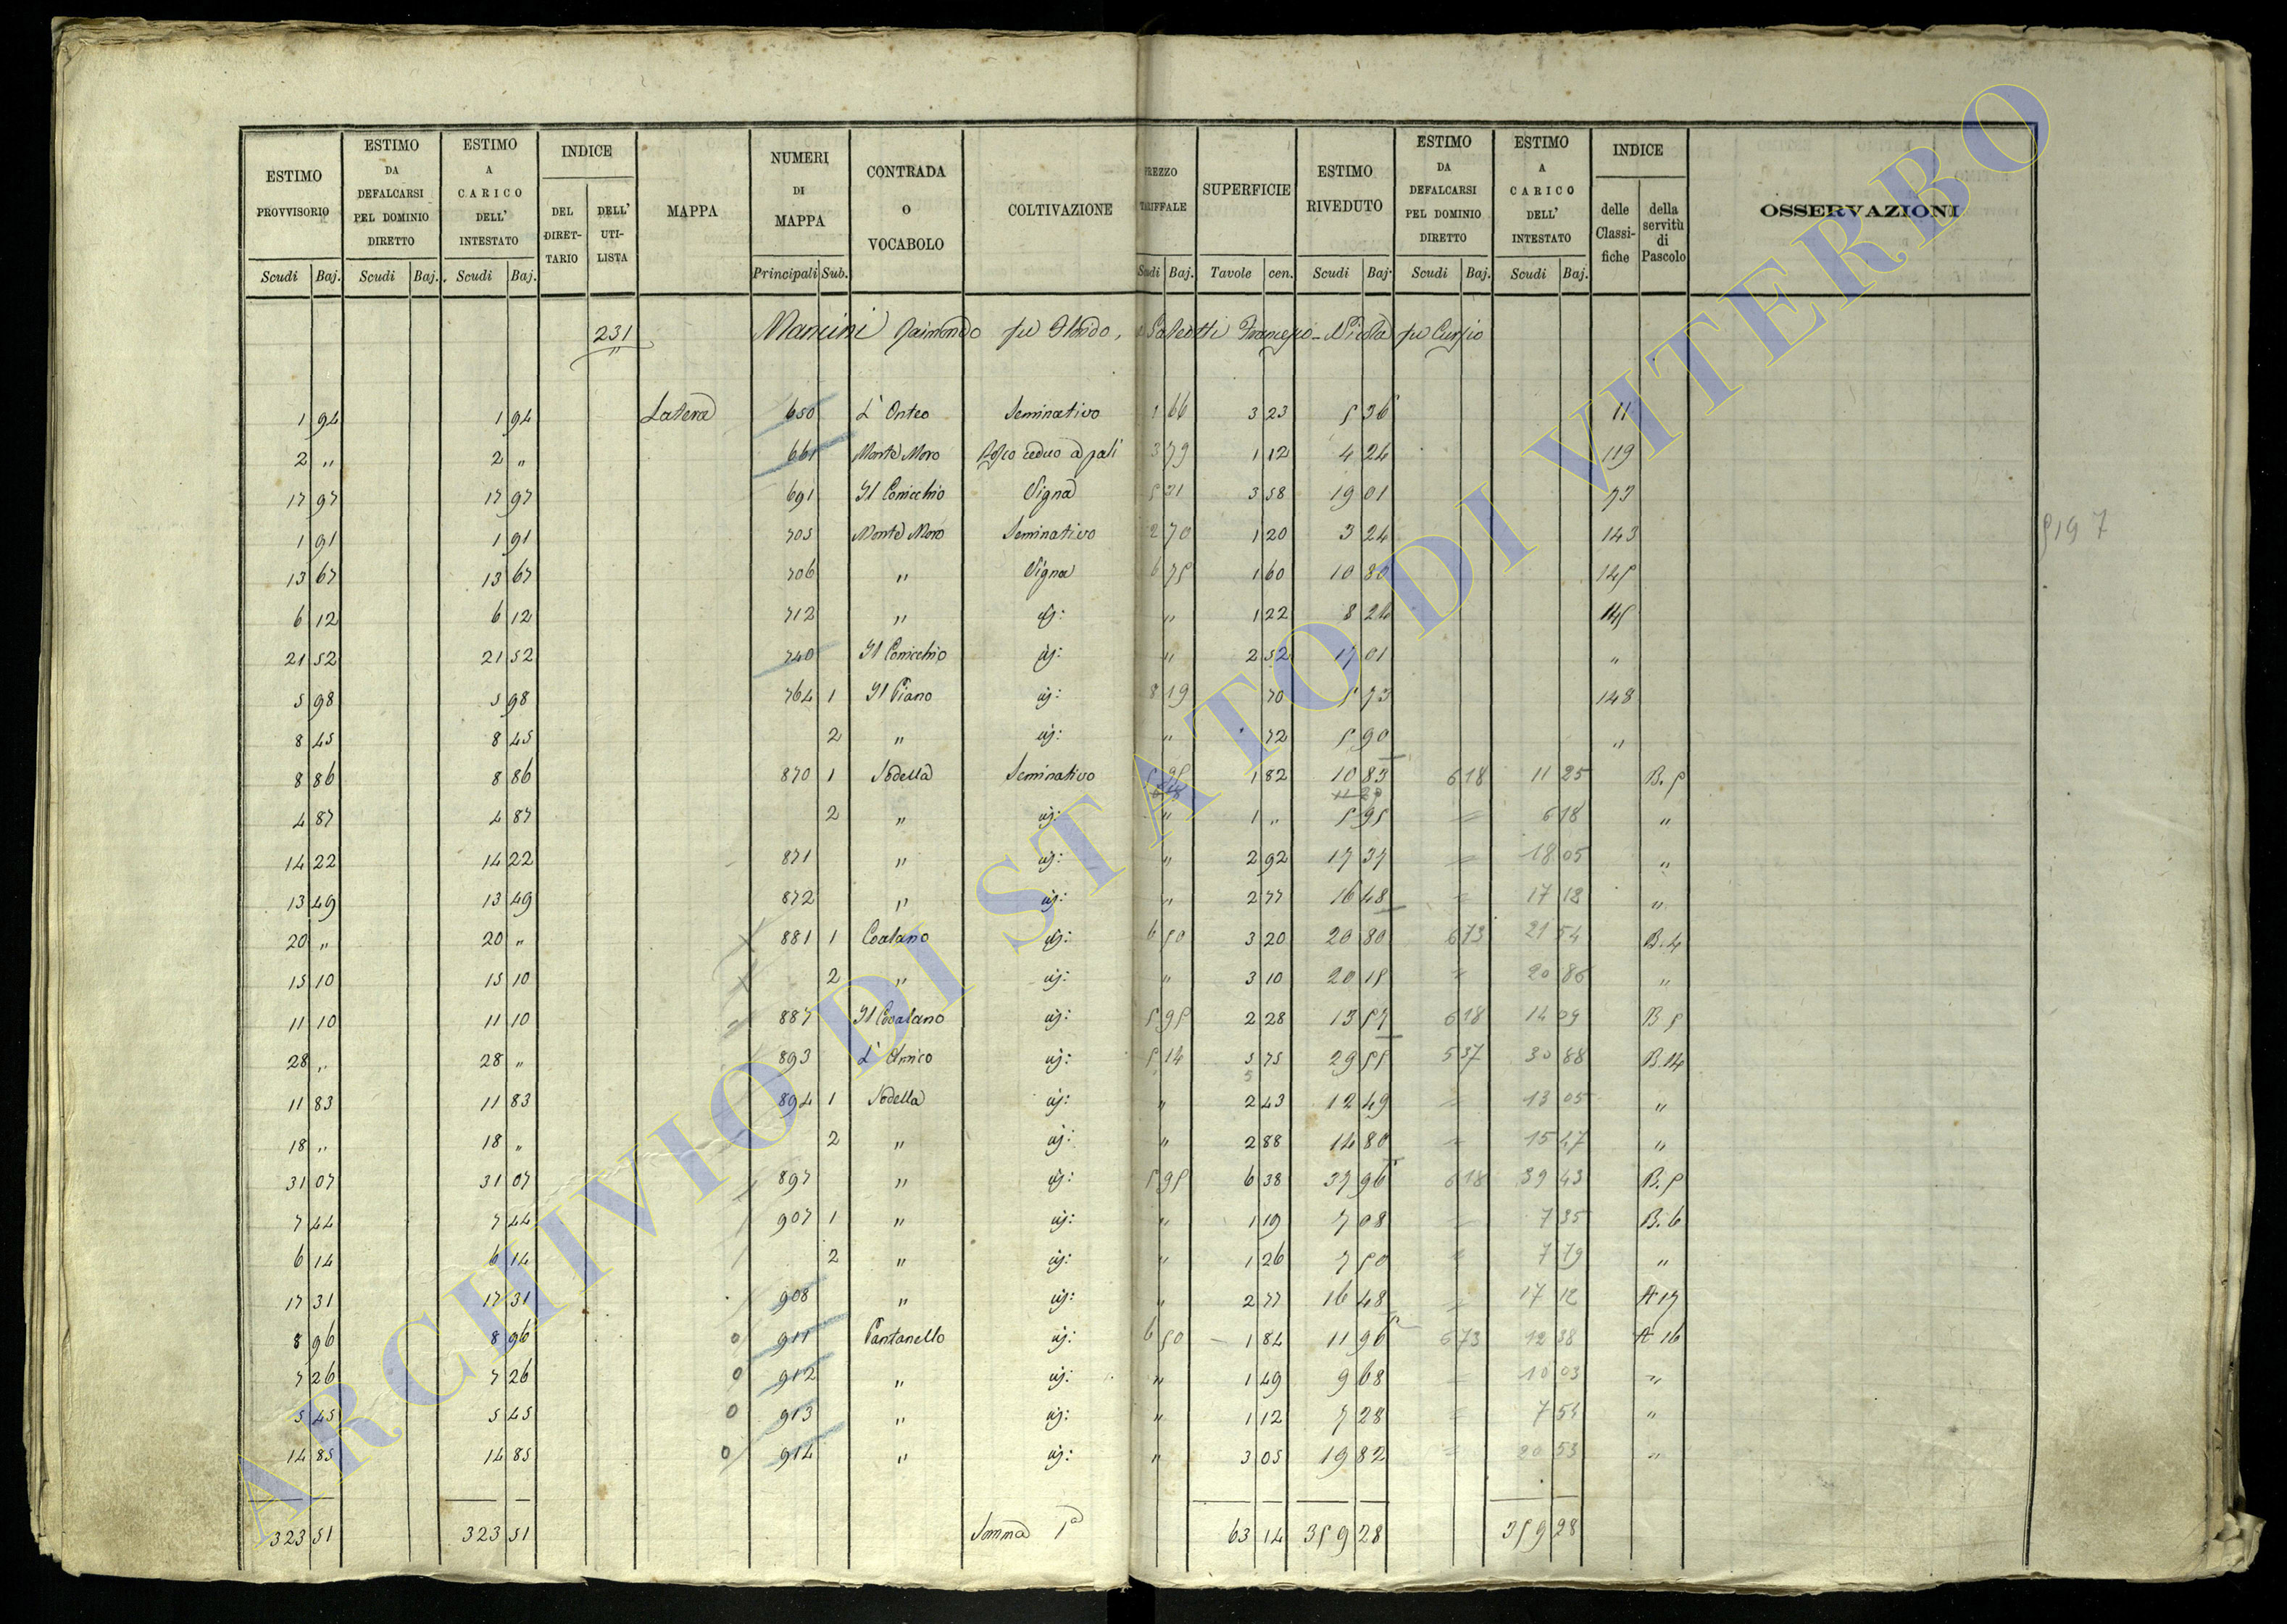 ESTIMO PROVVISORIO | ESTIMO DA DEFALCARSI PEL DOMINIO DIRETTO | ESTIMO A CARICO DELL' INTESTATO | INDICE DEL DIRETTARIO | DELL' UTILISTA | MAPPA | NUMERI DI MAPPA | CONTRADA O VOCABOLO | COLTIVAZIONE | PREZZO TARIFFALE | SUPERFICIE | ESTIMO RIVEDUTO | ESTIMO DA DEFALCARSI PEL DOMINIO DIRETTO | ESTIMO A CARICO DELL' INTESTATO | INDICE delle Classifiche | della servitù di Pascolo | OSSERVAZIONI
Scudi Baj. | Scudi Baj. | Scudi Baj. | Principali Sub. | Scudi Baj. | Tavole cen. | Scudi Baj. | Scudi Baj. | Scudi Baj.
231 Mancini Raimondo fu
1 94 | 1 94 | Latera | 650 | L' Onteo | Seminativo | 1 66 | 3 23 | 5 36 | 11
2 " | 2 " | 661 | Monte Moro | Bosco ceduo a pali | 3 79 | 1 12 | 4 24 | 119
17 97 | 17 97 | 691 | Il Conicchio | Vigna | 5 31 | 3 58 | 19 01 | 73
1 91 | 1 91 | 705 | Monte Moro | Seminativo | 2 70 | 1 20 | 3 24 | 143
13 67 | 13 67 | 706 | " | Vigna | 6 75 | 1 60 | 10 80 | 145
6 12 | 6 12 | 712 | " | " | 1 22 | 8 24 | 145
21 52 | 21 52 | 740 | Il Conicchio | " | 2 52 | 17 01 | "
5 98 | 5 98 | 764 1 | Il Piano | 8 19 | 70 | 5 73 | 148
8 45 | 8 45 | 2 | " | " | 72 | 5 90 | "
8 86 | 8 86 | 870 1 | Sodella | Seminativo | 5 95 | 1 82 | 10 83 | 6 18 | 11 25 | B. 5
4 87 | 4 87 | 2 | " | " | 1 " | 5 95 | = | 6 18 | "
14 22 | 14 22 | 871 | " | " | 2 92 | 17 37 | = | 18 05 | "
13 49 | 13 49 | 872 | " | " | 2 77 | 16 48 | = | 17 12 | "
20 " | 20 " | 881 1 | Coalano | 6 50 | 3 20 | 20 80 | 6 73 | 21 54 | B. 4
15 10 | 15 10 | 2 | " | " | 3 10 | 20 15 | = | 20 86 | "
11 10 | 11 10 | 887 | Il Coalano | 5 95 | 2 28 | 13 57 | 6 18 | 14 09 | B 5
28 " | 28 " | 893 | 5 14 | 5 75 | 29 55 | 5 37 | 30 88 | B. 14
11 83 | 11 83 | 894 1 | Sodella | " | 2 43 | 12 49 | = | 13 05 | "
18 " | 18 " | 2 | " | " | 2 88 | 14 80 | = | 15 47 | "
31 07 | 31 07 | 897 | " | 5 95 | 6 38 | 37 96 | 6 18 | 39 43 | B. 5
7 44 | 7 44 | 907 1 | " | " | 1 19 | 7 08 | = | 7 35 | B. 6
6 14 | 6 14 | 2 | " | " | 1 26 | 7 50 | = | 7 79 | "
17 31 | 17 31 | 908 | " | " | 2 77 | 16 48 | = | 17 12 | A 17
8 96 | 8 96 | 0 | 911 | Pantanello | 6 50 | 1 84 | 11 96 | 6 73 | 12 38 | A 16
7 26 | 7 26 | 0 | 912 | " | " | 1 49 | 9 68 | 10 03 | "
5 45 | 5 45 | 0 | 913 | " | " | 1 12 | 7 28 | = | 7 54 | "
14 85 | 14 85 | 0 | 914 | " | " | 3 05 | 19 82 | = | 20 53 | "
323 51 | 323 51 | Somma 1a | 63 14 | 359 28 | 359 28
ARCHIVIO DI STATO DI VITERBO